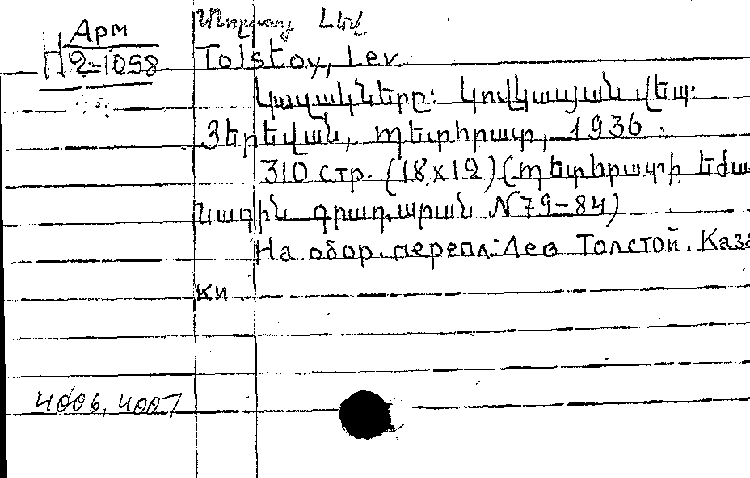 Арм
Н 2-1058
Տոլստոյ Լեվ
Tolstoy, Lev
Կազակները: Կովկասյան վեպ.
Յերեվան, Պետհրատ, 1936.
310 стр. (18x12) (Պետհրատի եժա
նագին գրադարան N 79-84)
На обор. перепл: Лев Толстой. Каза
ки
4006, 4007